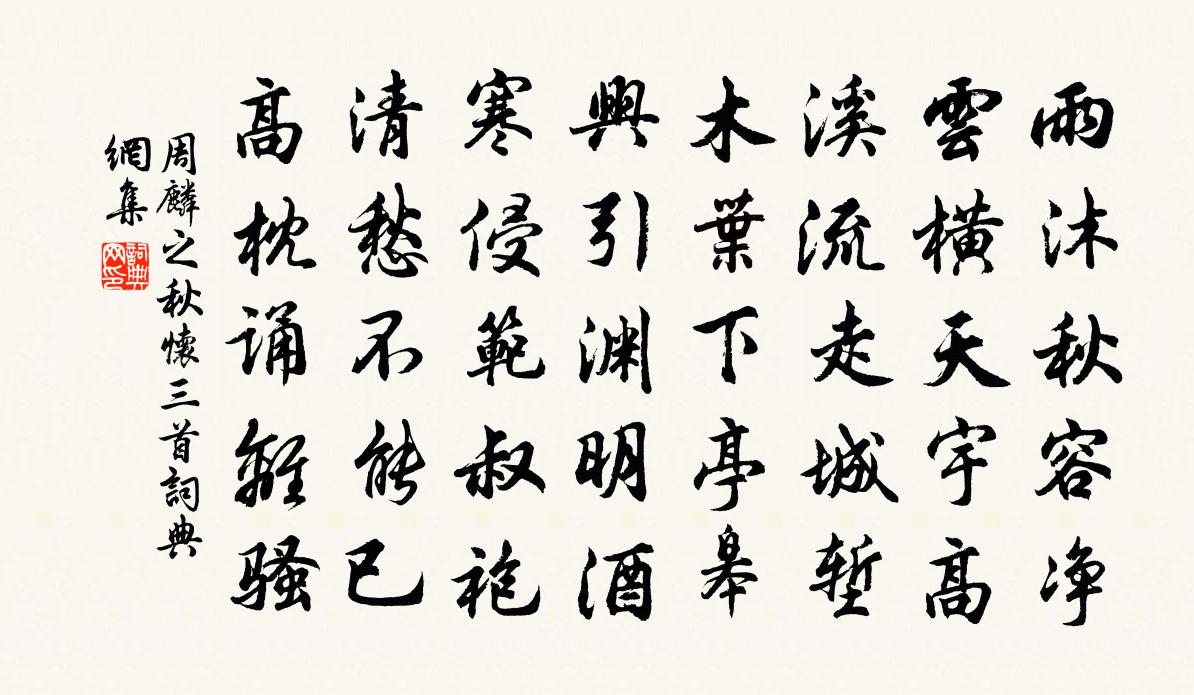 雨沐秋容净
雲橫天宇高
溪流走城塹
木葉下亭皋
興引淵明酒
寒侵範叔袍
清愁不能已
高枕誦離騷
周麟之秋懷三首詞典
網集
詞典
网印